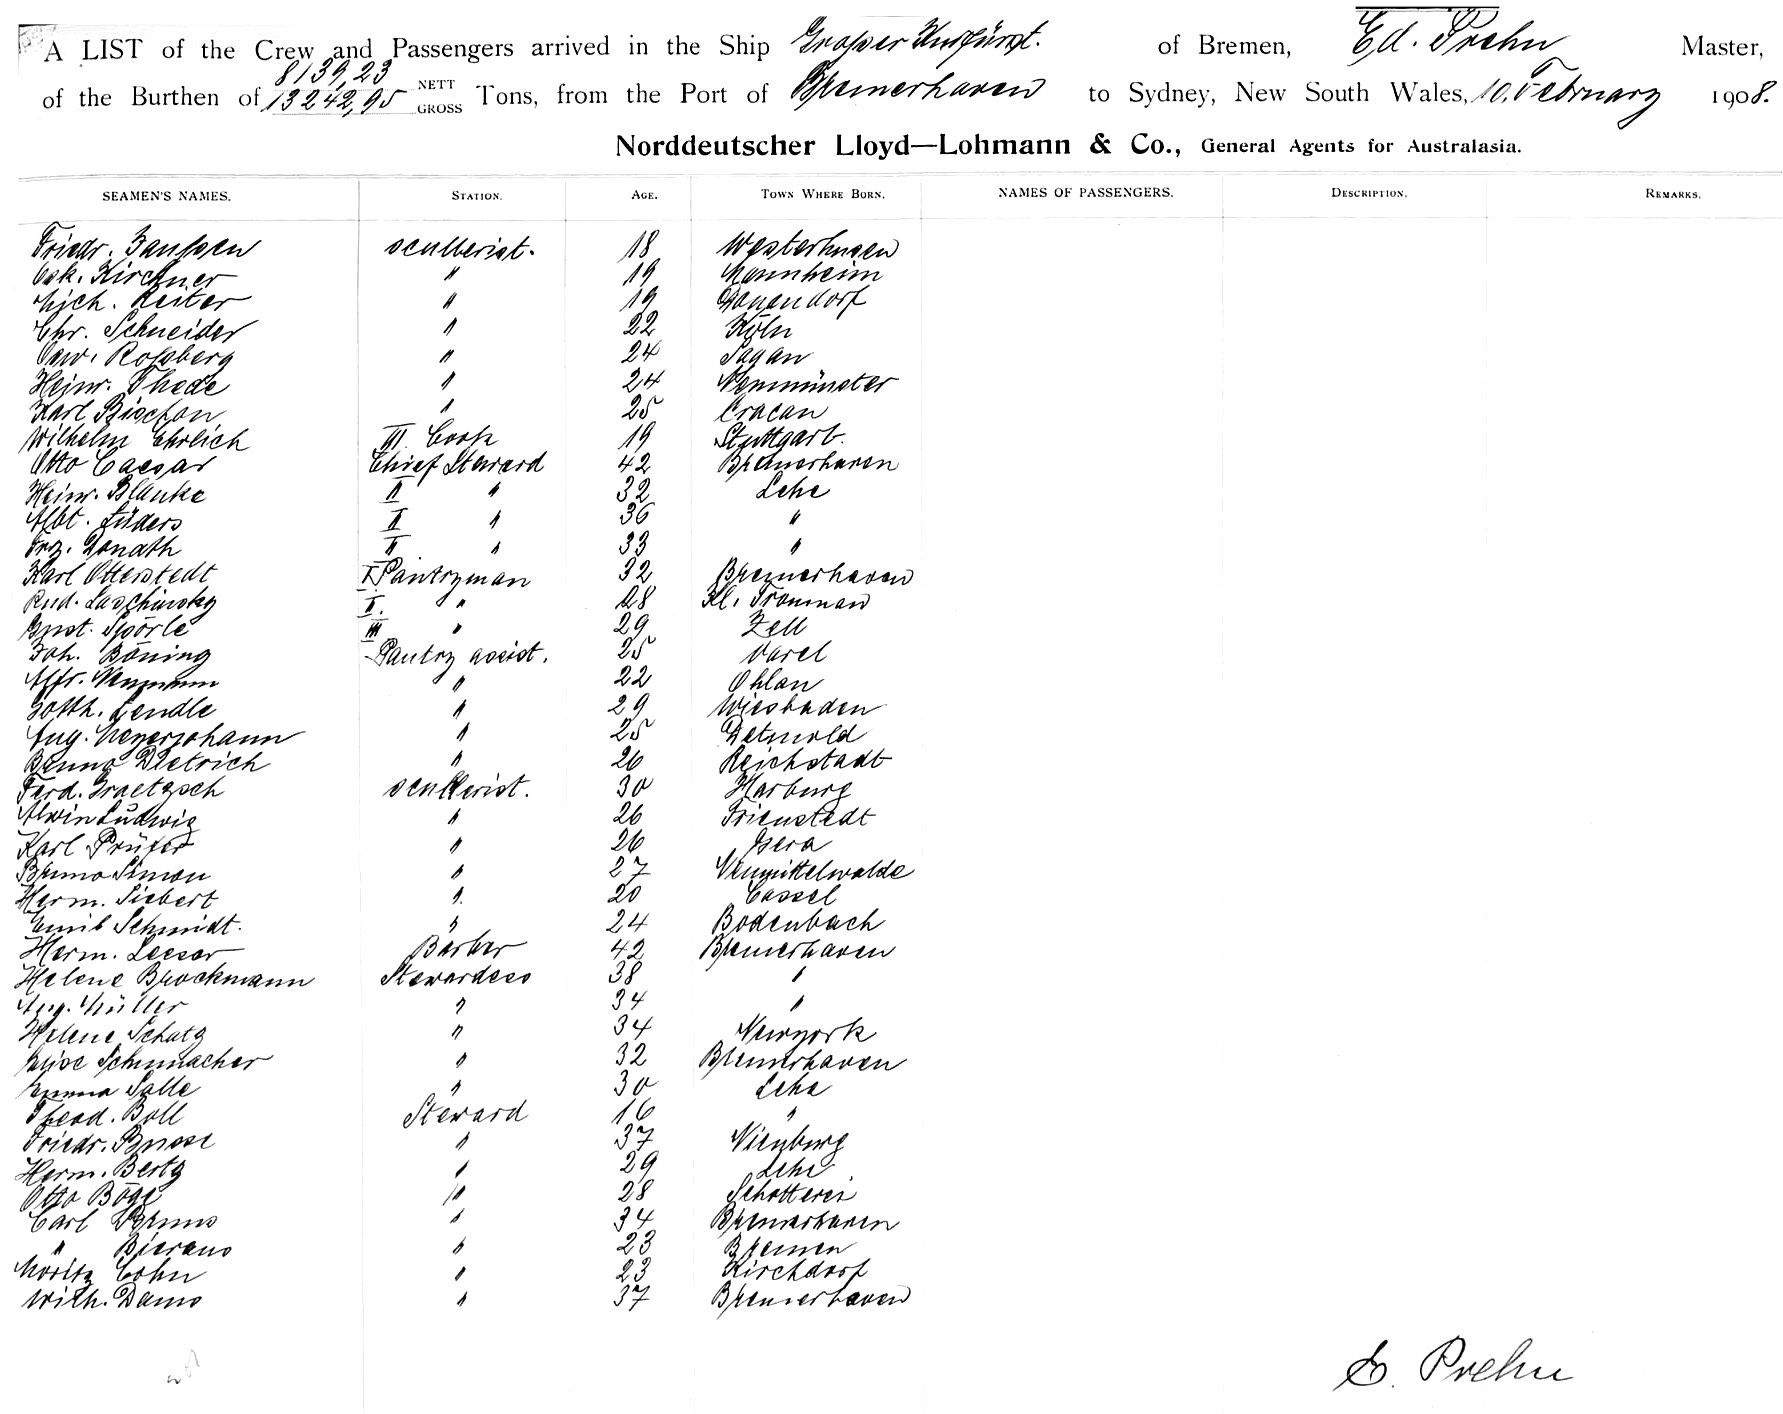 A LIST of the Crew and Passengers arrived in the Ship Grosser Kurfürst. of Bremen, Ed. Prehn Master,
8139,23 NETT
of the Burthen of 13242,95 GROSS Tons, from the Port of Bremerhaven to Sydney, New South Wales, 10. February 1908.
Norddeutscher Lloyd—Lohmann & Co., General Agents for Australasia.
SEAMEN'S NAMES. STATION. AGE. TOWN WHERE BORN. NAMES OF PASSENGERS. DESCRIPTION. REMARKS.
Friedr. Janssen scullerist. 18 Westerhusen
Osk. Kirchner " 19 Mannheim
Mich. Reiter " 19
Chr. Schneider " 22 Köln
Osw. Rossberg " 24 Sagan
Heinr. Thede " 24 Neumünster
Karl Bischon 25 Cracau
Wilhelm Ehrlich III Cook 19 Stuttgart.
Otto Caesar Chief Steward 42 Bremerhaven
Heinr. Blanke II " 32 Lehe
Albt. Lüders II " 36 "
Frz. Donath II " 33 "
Karl Otterstedt I. Pantryman 32 Bremerhaven
Rud. Laschinsky II. " 28 Kl.
Gust. Spörle III " 29 Zell
Joh. Böning Pantry assist. 25 Varel
Alfr. Neumann " 22 Ohlau
Gotth. Lendle " 29 Wiesbaden
Aug. Meyerjohann " 25 Detmold
Benno Dietrich " 26 Reichstadt
Ferd. Graetzsch scullerist. 30 Harburg
Alwin Ludwig " 26 Frienstedt
Karl Prüfer " 26 Gera
Bruno Simon " 27 Neumittelwalde
Herm. Siebert " 20 Cassel
Emil Schmidt. " 24 Bodenbach
Herm. Leeser Barber 42 Bremerhaven
Helene Brockmann Stewardess 38 "
Aug. Müller " 34 "
Helene Schatz " 34 Newyork
Elise Schumacher " 32 Bremerhaven
Emma Salle " 30 Lehe
Theod. Boll Steward 16 "
Friedr. Busse " 37 Nienburg
Herm. Bertz " 29 Lehe
Otto Böge " 28 Schotterei
Carl Bruns " 34 Bremerhaven
" Bierans " 23 Bremen
Moritz Cohn " 23 Kirchdorf
Wilh. Dams " 37 Bremerhaven
E. Prehn